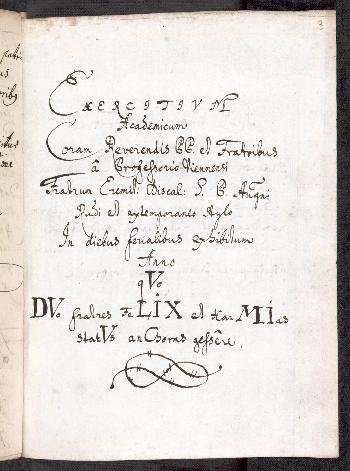 3
EXERCITIVM
Academicum
Coram Reverendis PP. et Fratribus
â Professorio Viennensi
Fratrum Eremit: Discal: S. P. Aug͂ni
Rudi et extemporaneo stylo
In diebus ferialibus exhibitum
Anno
qVo
DVo fratres FeLIX et HarMIas
statVs anChoras gessêre.